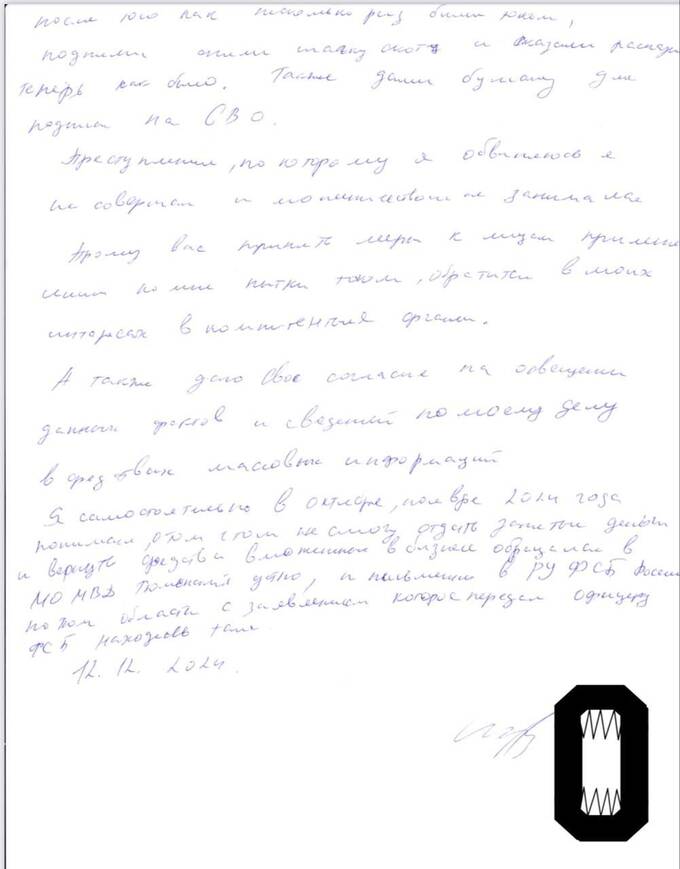 после чего как несколько раз били током,
подняли сняли шапку и сказали расскажи
теперь как было. Также дали бумагу для
подписи на СВО.
Преступлении, по которому я обвиняюсь я
не совершал и мошенничеством не занимался
Прошу вас принять меры к лицам приме
ко мне пытки током, обратится в моих
интересах в органы.
А также даю свое согласие на освещении
данных фактов и сведений по моему делу
в средствах массовых информаций
Я самостоятельно в октябре, ноябре 2024 года
понимая, о том что не смогу отдать занятые деньги
и вернуть средства вложенное в бизнес обращался в
МО МВД устно, и письменно в РУ ФСБ России
по области с заявлением которое передал офицеру
ФСБ находясь там
12.12. 2024.